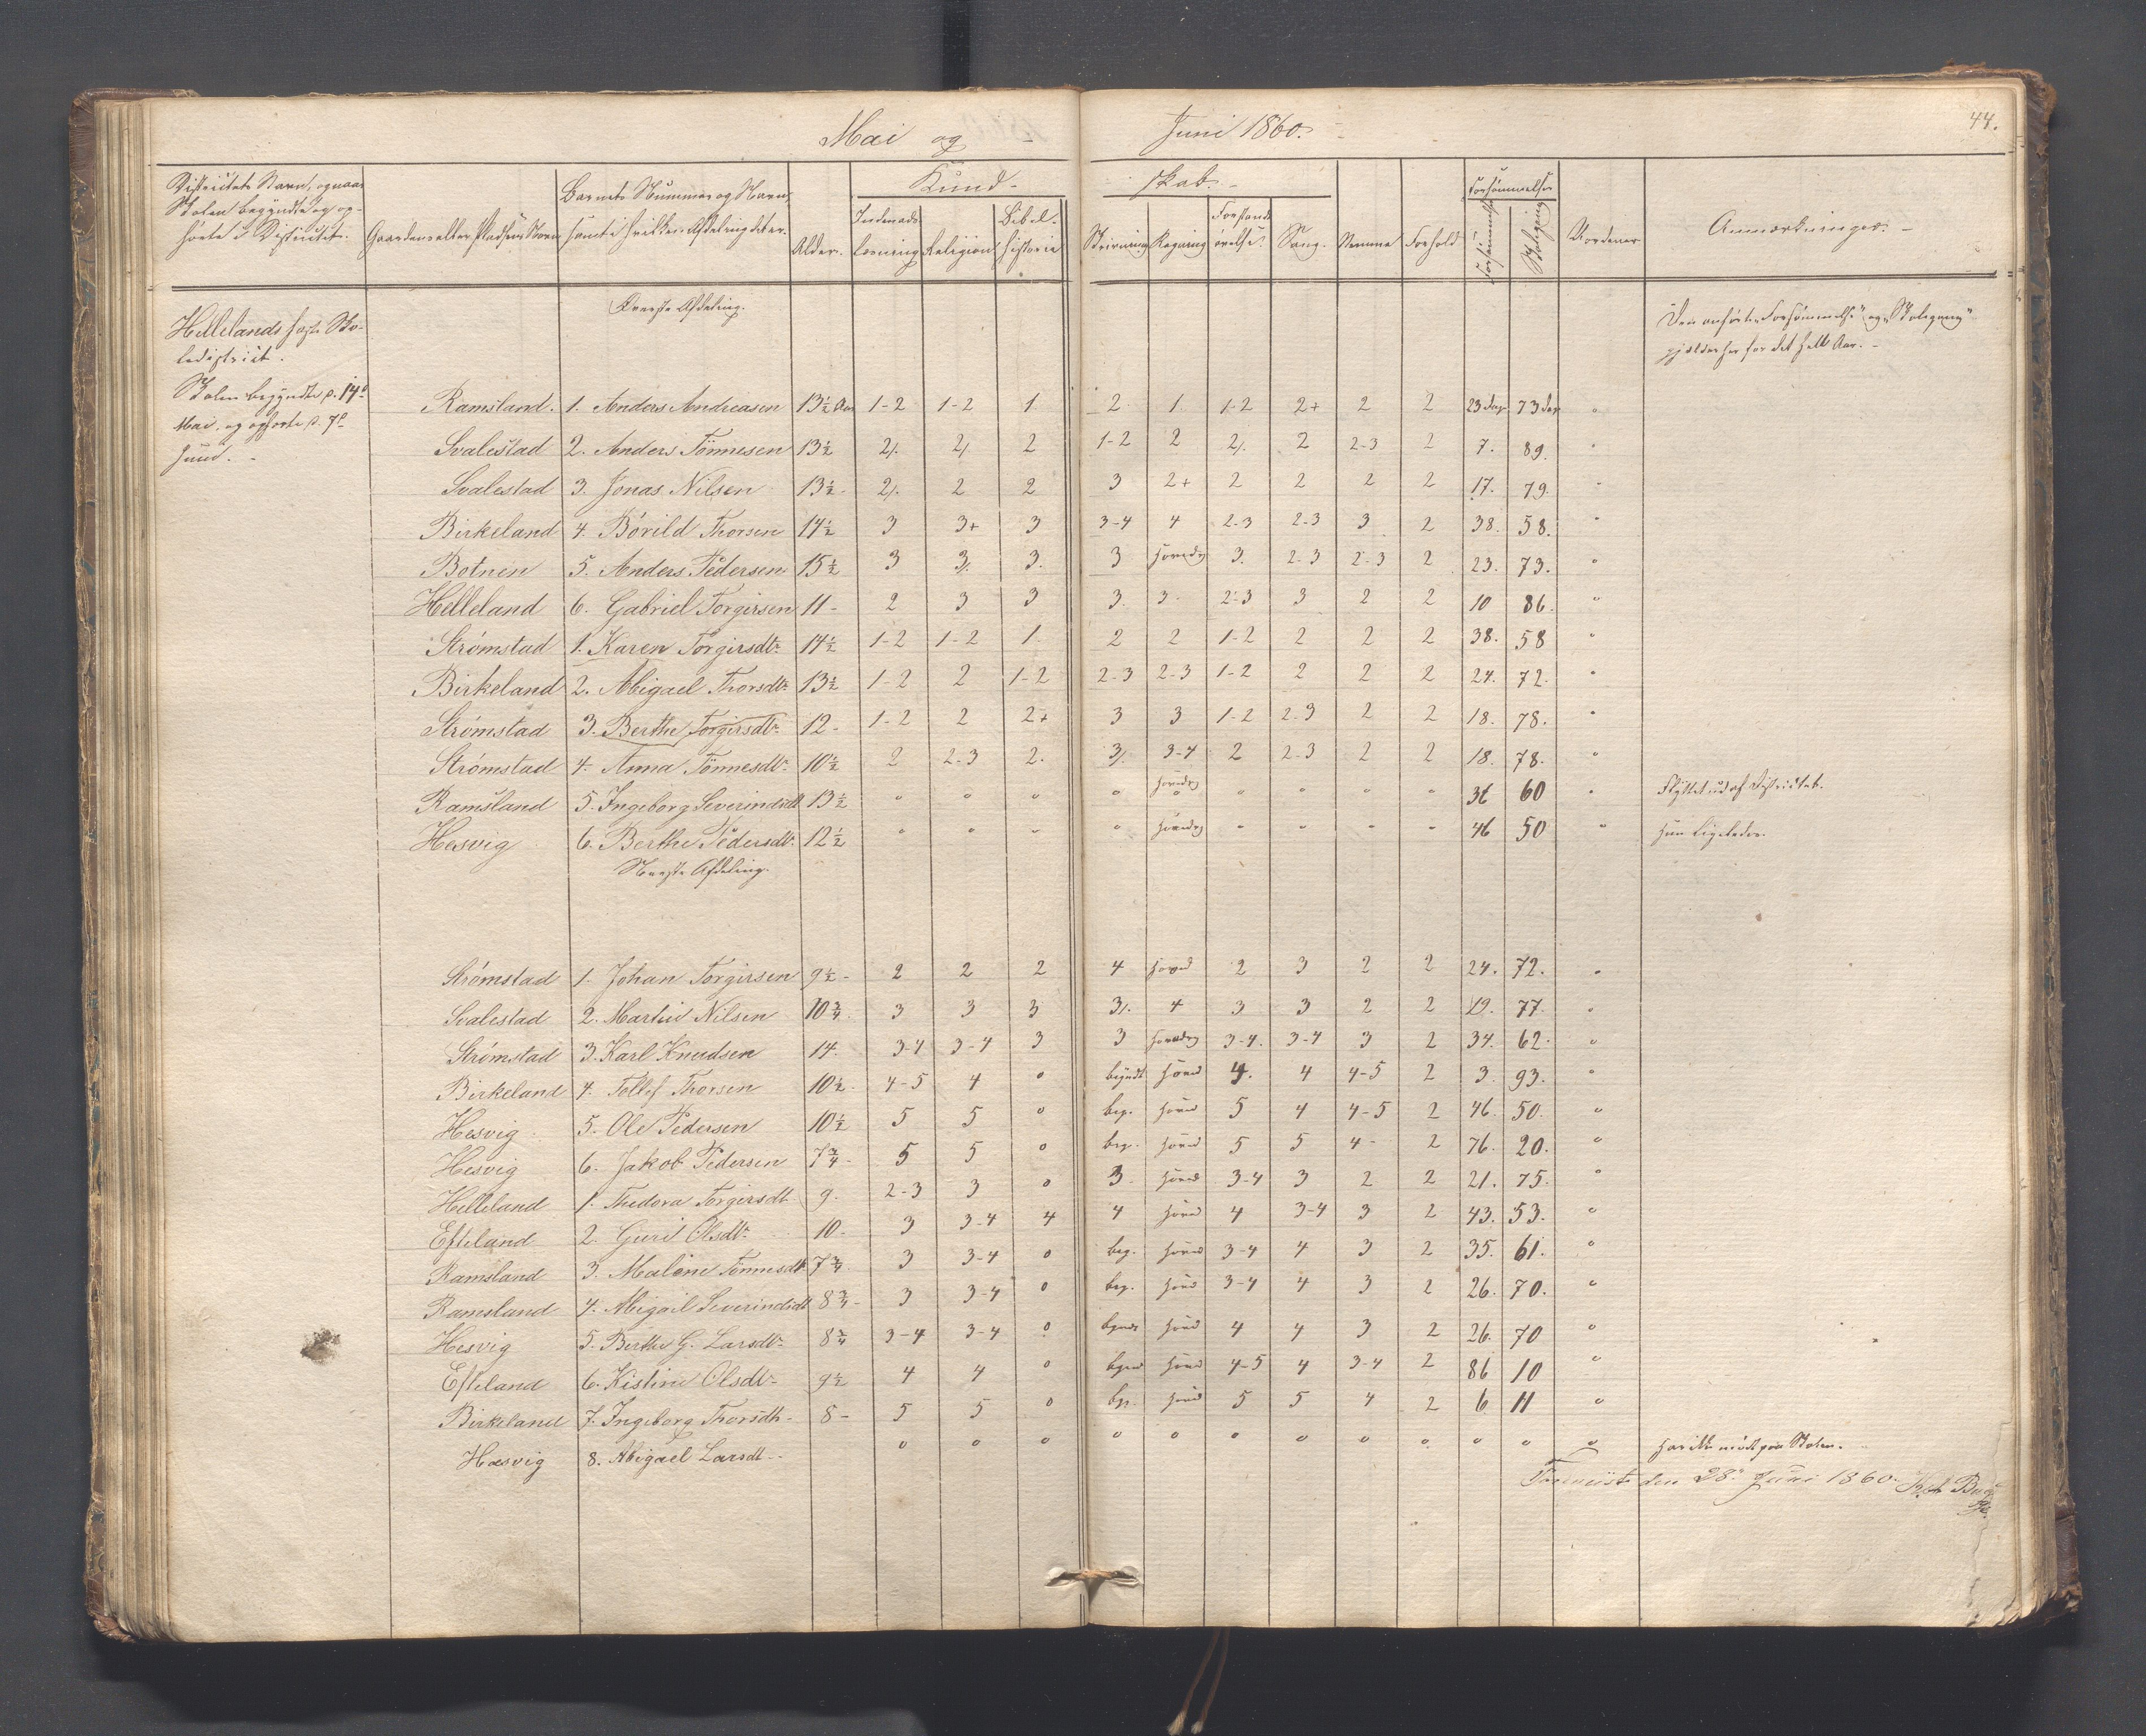 44.
Mai og Juni 1860.
Districtets Navn, ognaar Skolen begyndte og ophørte i Districtet. Gaardens eller Pladsens Navn Barnets Nummer og Navn, samt i hvilken Afdeling det er. Alder. Kund- skab.- Forsømmelser Anmærkninger.-
Indenads Læsning Religion Bibel-historie Skrivning Regning Forstands øvelse. Sang. Nemme Forhold Forsømmelse Skolegang
Hellelands faste Sko- Øverste Afdeling. Den anførte "Forsømmelse" og "Skolegang"
ledistrict. gjælder her for det hele Aar.-
Skolen begyndte d. 14de
Mai og ophørte d. 7de
Juni.-
Ramsland. 1. Anders Andreasen 13½ Aar 1-2 1-2 1 2 1 1-2 2+ 2 2 23 Dage 73 Dage "
Svalestad 2. Anders Tönnesen 13½ 2/. 2/ 2 1-2 2 2/. 2 2-3 2 7. 89. "
Svalestad 3. Jonas Nilsen 13½ 2/. 2 2 3 2+ 2 2 2 2 17. 79. "
Birkeland 4. Börild Thorsen 14½ 3 3+ 3 3-4 4 2-3 2-3 3 2 38. 58. "
Botnen 5. Anders Pedersen 15½ 3 3/. 3. 3 3. 2-3 2-3 2 23. 73. "
Helleland 6. Gabriel Torgirsen 11- 2 3 3 3. 3. 2-3 3 2 2 10 86. "
Strömstad 1. Karen Torgirsdtr 14½ 1-2 1-2 1. 2 2 1-2 2 2 2 38. 58 "
Birkeland 2. Abigael Thorsdtr 13½ 1-2 2 1-2 2-3 2-3 1-2 2 2 2 24. 72. "
Strömstad 3. Berthe Torgirsdtr 12- 1-2 2 2+ 3 3 1-2 2-3 2 2 18. 78. "
Strömstad 4. Anna Tönnesdtr 10½ 2 2-3 2. 3/. 3-4 2 2-3 2 2 18. 78. "
Ramsland 5. Ingeborg Severinsdtr 13½ " " " " " " " " " 36 60 " Flyttet ud af Districtet.
Hesvig 6. Berthe Pedersdtr. 12½ " " " " " " " " 46 50 " Hun ligeledes.
Nederste Afdeling.
Strömstad 1. Johan Torgirsen 9½- 2 2 2 4 2 3 2 2 24. 72. "
Svalestad 2. Martin Nilsen 10¾. 3 3 3 3/. 4 3 3 2 2 19. 77. "
Strömstad 3. Karl Knudsen 14. 3-4 3-4 3 3 3-4. 3-4 3 2 34. 62. "
Birkeland 4. Tollef Thorsen 10½ 4-5 4 " begyndt 4. 4 4-5 2 3 93. "
Hesvig 5. Ole Pedersen 10½ 5 5 " beg. 5 4 4-5 2 46. 50. "
Hesvig 6. Jakob Pedersen 7¾- 5 5 " beg. 5 5 4- 2 76. 20. "
Helleland 1. Theodora Torgirsdtr 9. 2-3 3 " 3. 3-4 3 2 2 21. 75. "
Efteland 2. Guril Olsdtr 10- 3 3-4 4 4 4 3-4 3 2 43. 53. "
Ramsland 3. Malene Tönnesdtr 7¾ 3 3-4 " beg. 3-4 4 3 2 35. 61. "
Ramsland 4. Abigail Severinsdtr 8¾- 3 3-4 " beg. 3-4 4 3 2 26. 70. "
Hesvig 5. Berthe G. Larsdtr 8¾ 3-4 3-4 " 4 4 3 2 26. 70 "
Efteland 6. Kistine Olsdtr 9½ 4 4 " 4-5 4 3-4 2 86 10 "
Birkeland 7. Ingeborg Thorsdtr- 8- 5 5 " beg. 5 5 4 2 6 11 "
Hæsvig 8. Abigael Larsdtr " " " " " " " " " " " " Har ikke mødt paa Skolen.
Foreviist den 28de Juni 1860.